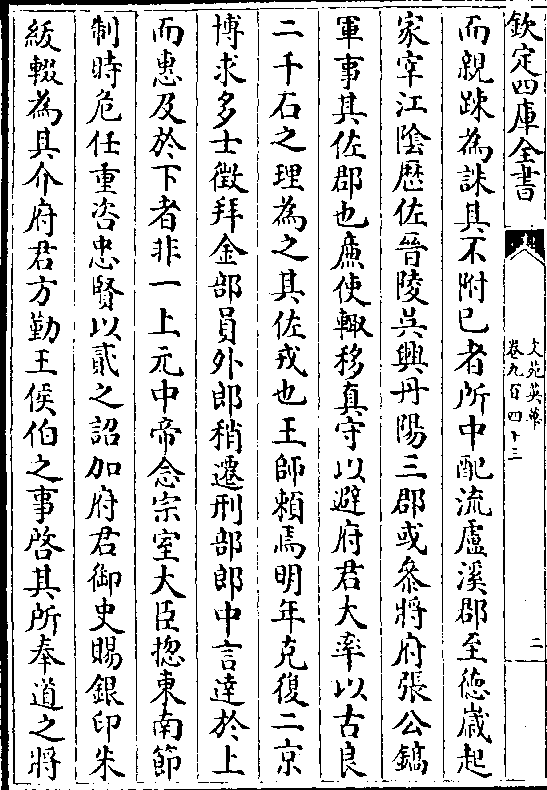 欽定四庫全書
文苑英華
卷九百四十三
二
而親踈為誅其不附已者所中配流盧溪郡至德歲起
家宰江隂歴佐晉陵吳興丹陽三郡或叅將府張公鎬
軍事其佐郡也亷使輙移真守以避府君大率以古良
二千石之理為之其佐戎也王師頼焉明年克復二京
博求多士徵拜金部員外郎稍遷刑部郎中言達於上
而惠及於下者非一上元中帝念宗室大臣揔東南節
制時危任重咨忠賢以貳之詔加府君御史賜銀印朱
紱輟為具介府君方勤王侯伯之事啓其所奉道之將